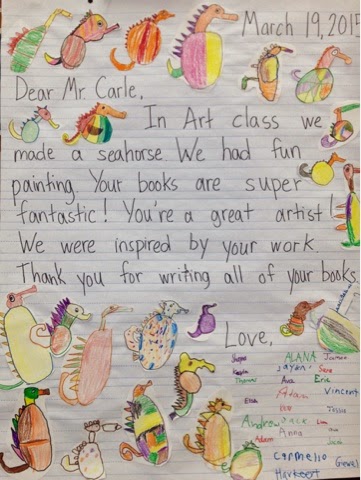 March 19, 2015
Dear Mr. Carle,
In Art class we
made a seahorse We had fun
painting. Your books are super
fantastic! You're a great artist!
We were inspired by your work.
Thank you for writing all of your books.
Love,
ALANA
Jayan Sara
Thomas Ava Eric
Ella Adam Vincent
Andrew JACK Liam
Adam Anna
Carmelo
Harkeert